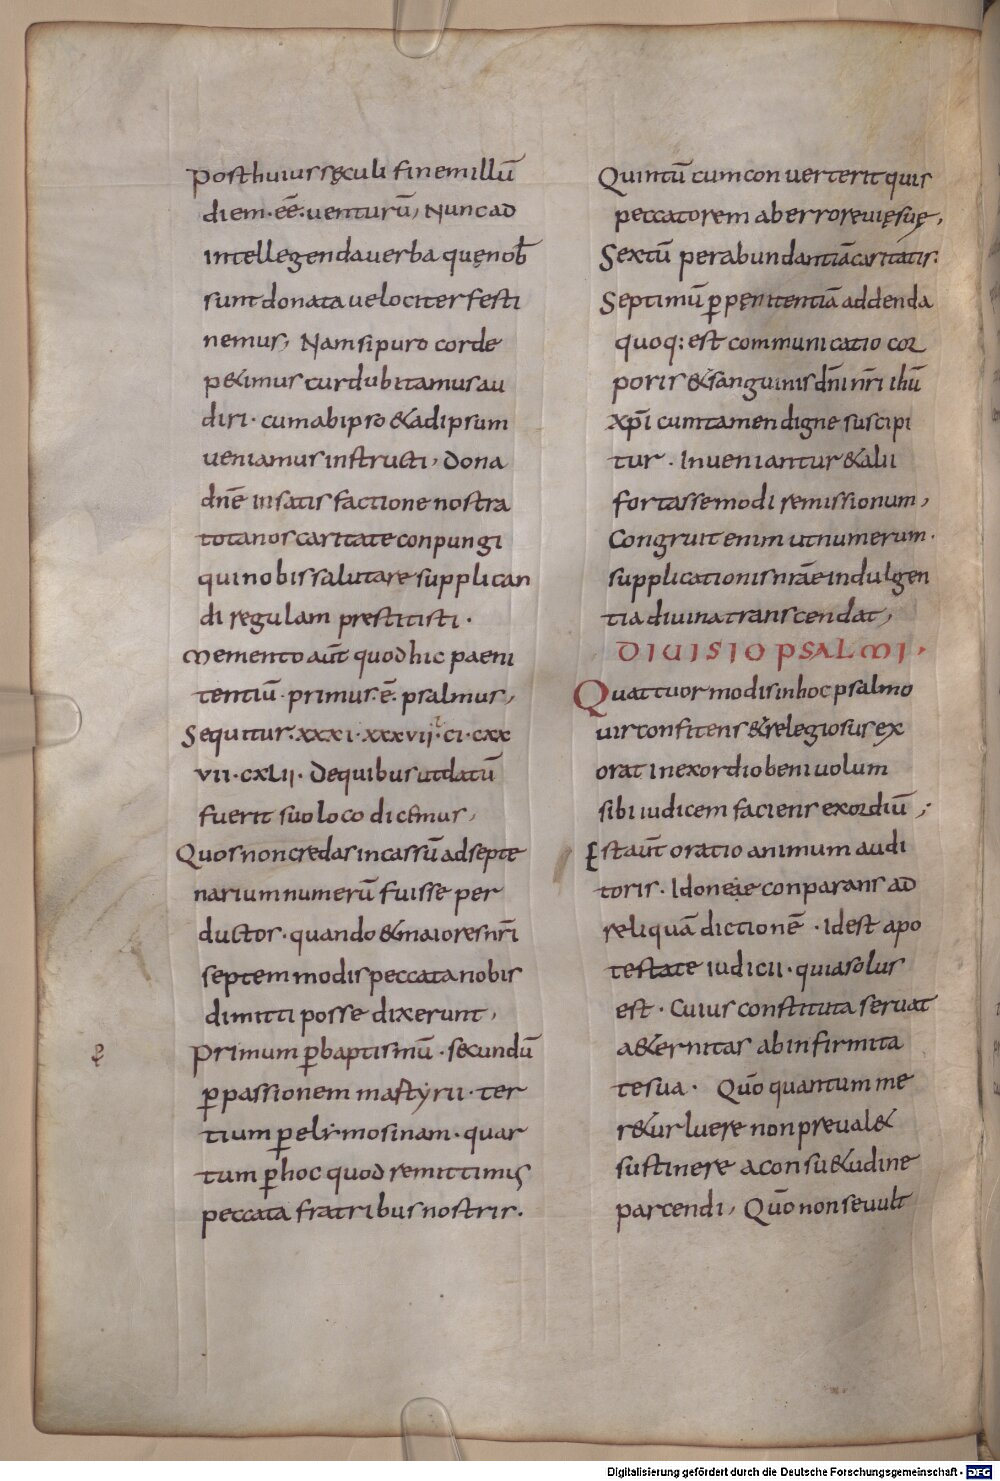 post huius sęculi finem illū
diem · eē · uenturū, Nunc ad
intellegenda uerba quę nob̄
sunt donata uelociter festi
nemus, Nam si puro corde
p&imus cur dubitamus au
diri · cum ab ipso & ad ipsum
ueniamus instructi, dona
dn̄e in satisfactione nostra
tota nos caritate conpungi
qui nobis salutare supplican
di regulam prestitisti ·
Memento aūt quod hic paeni
tentiū · primus · ē · psalmus,
Sequitur · xxxi · xxxvii · ci · cxx
vii · cxlii · De quibus ut datū
fuerit suo loco dicemus,
Quos non credas incassū ad septe
narium numerū fuisse per
ductos · quando & maiores nr̄i
septem modis peccata nobis
dimitti posse dixerunt,
Primum ꝑ baptismū · secundū
ꝑ passionem martyrii · ter
tium ꝑ elymosinam · quar
tum ꝑ hoc quod remittimus
peccata fratribus nostris ·
Quintū cum conuerterit quis
peccatorem ab errore uię suę,
Sextū per abundantiā caritatis ·
Septimū ꝑ pęnitentiā addenda
quoq: est communicatio cor
poris & sanguinis dn̄i nr̄i ihū
xp̄i cum tamen digne suscipi
tur · Inueniantur & alii
fortasse modi remissionum,
Congruit enim ut numerum ·
supplicationis nrāe indulgen
tia diuina transcendat,
DIUISIO PSALMI ·
Quattuor modis in hoc psalmo
uir confitens & relegiosus ex
orat in exordio beniuolum
sibi iudicem faciens exordiū ;
Est aūt oratio animum audi
toris · Idoneie conparans ad
reliquā dictionē · Id est a po
testate iudicii · quia solus
est · Cuius constituta seruat
a&ernitas ab infirmita
te sua · Quō quantum me
r&ur luere non preual&
sustinere a consu&udine
parcendi, Quō non se uult
Digitalisierung gefördert durch die Deutsche Forschungsgemeinschaft - DFG